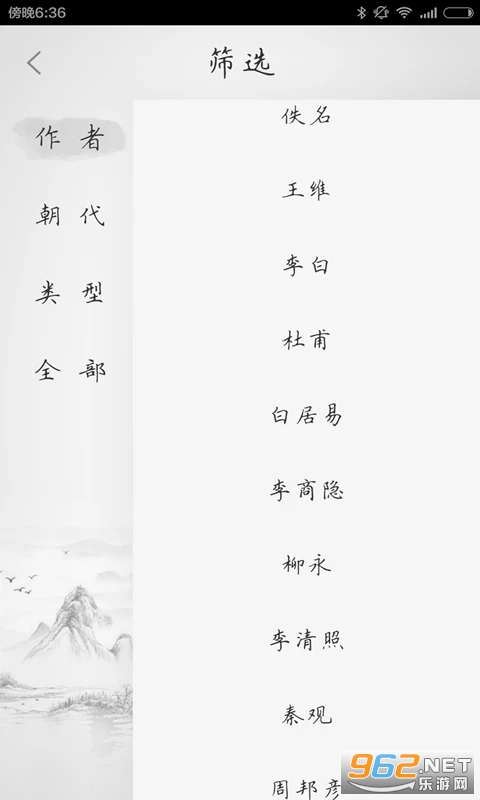 傍晚6:36
筛选
作者
朝代
类型
全部
佚名
王维
李白
杜甫
白居易
李商隐
柳永
李清照
秦观
周邦彦
962.NET
乐游网